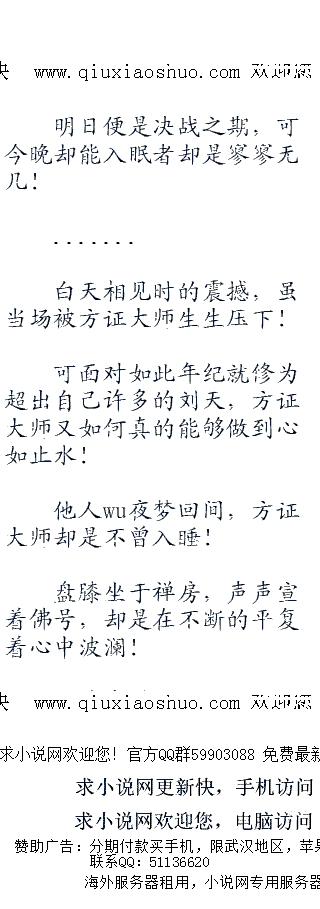 快 www.qiuxiaoshuo.com 欢迎您
明日便是决战之期，可
今晚却能入眠者却是寥寥无
几！
.......
白天相见时的震撼，虽
当场被方证大师生生压下！
可面对如此年纪就修为
超出自己许多的刘天，方证
大师又如何真的能够做到心
如止水！
他人wu夜梦回间，方证
大师却是不曾入睡！
盘膝坐于禅房，声声宣
着佛号，却是在不断的平复
着心中波澜！
快 www.qiuxiaoshuo.com 欢迎您
求小说网欢迎您！官方QQ群59903088 免费最新
求小说网更新快，手机访问
求小说网欢迎您，电脑访问
赞助广告：分期付款买手机，限武汉地区，苹果
联系QQ：51136620
海外服务器租用，小说网专用服务器